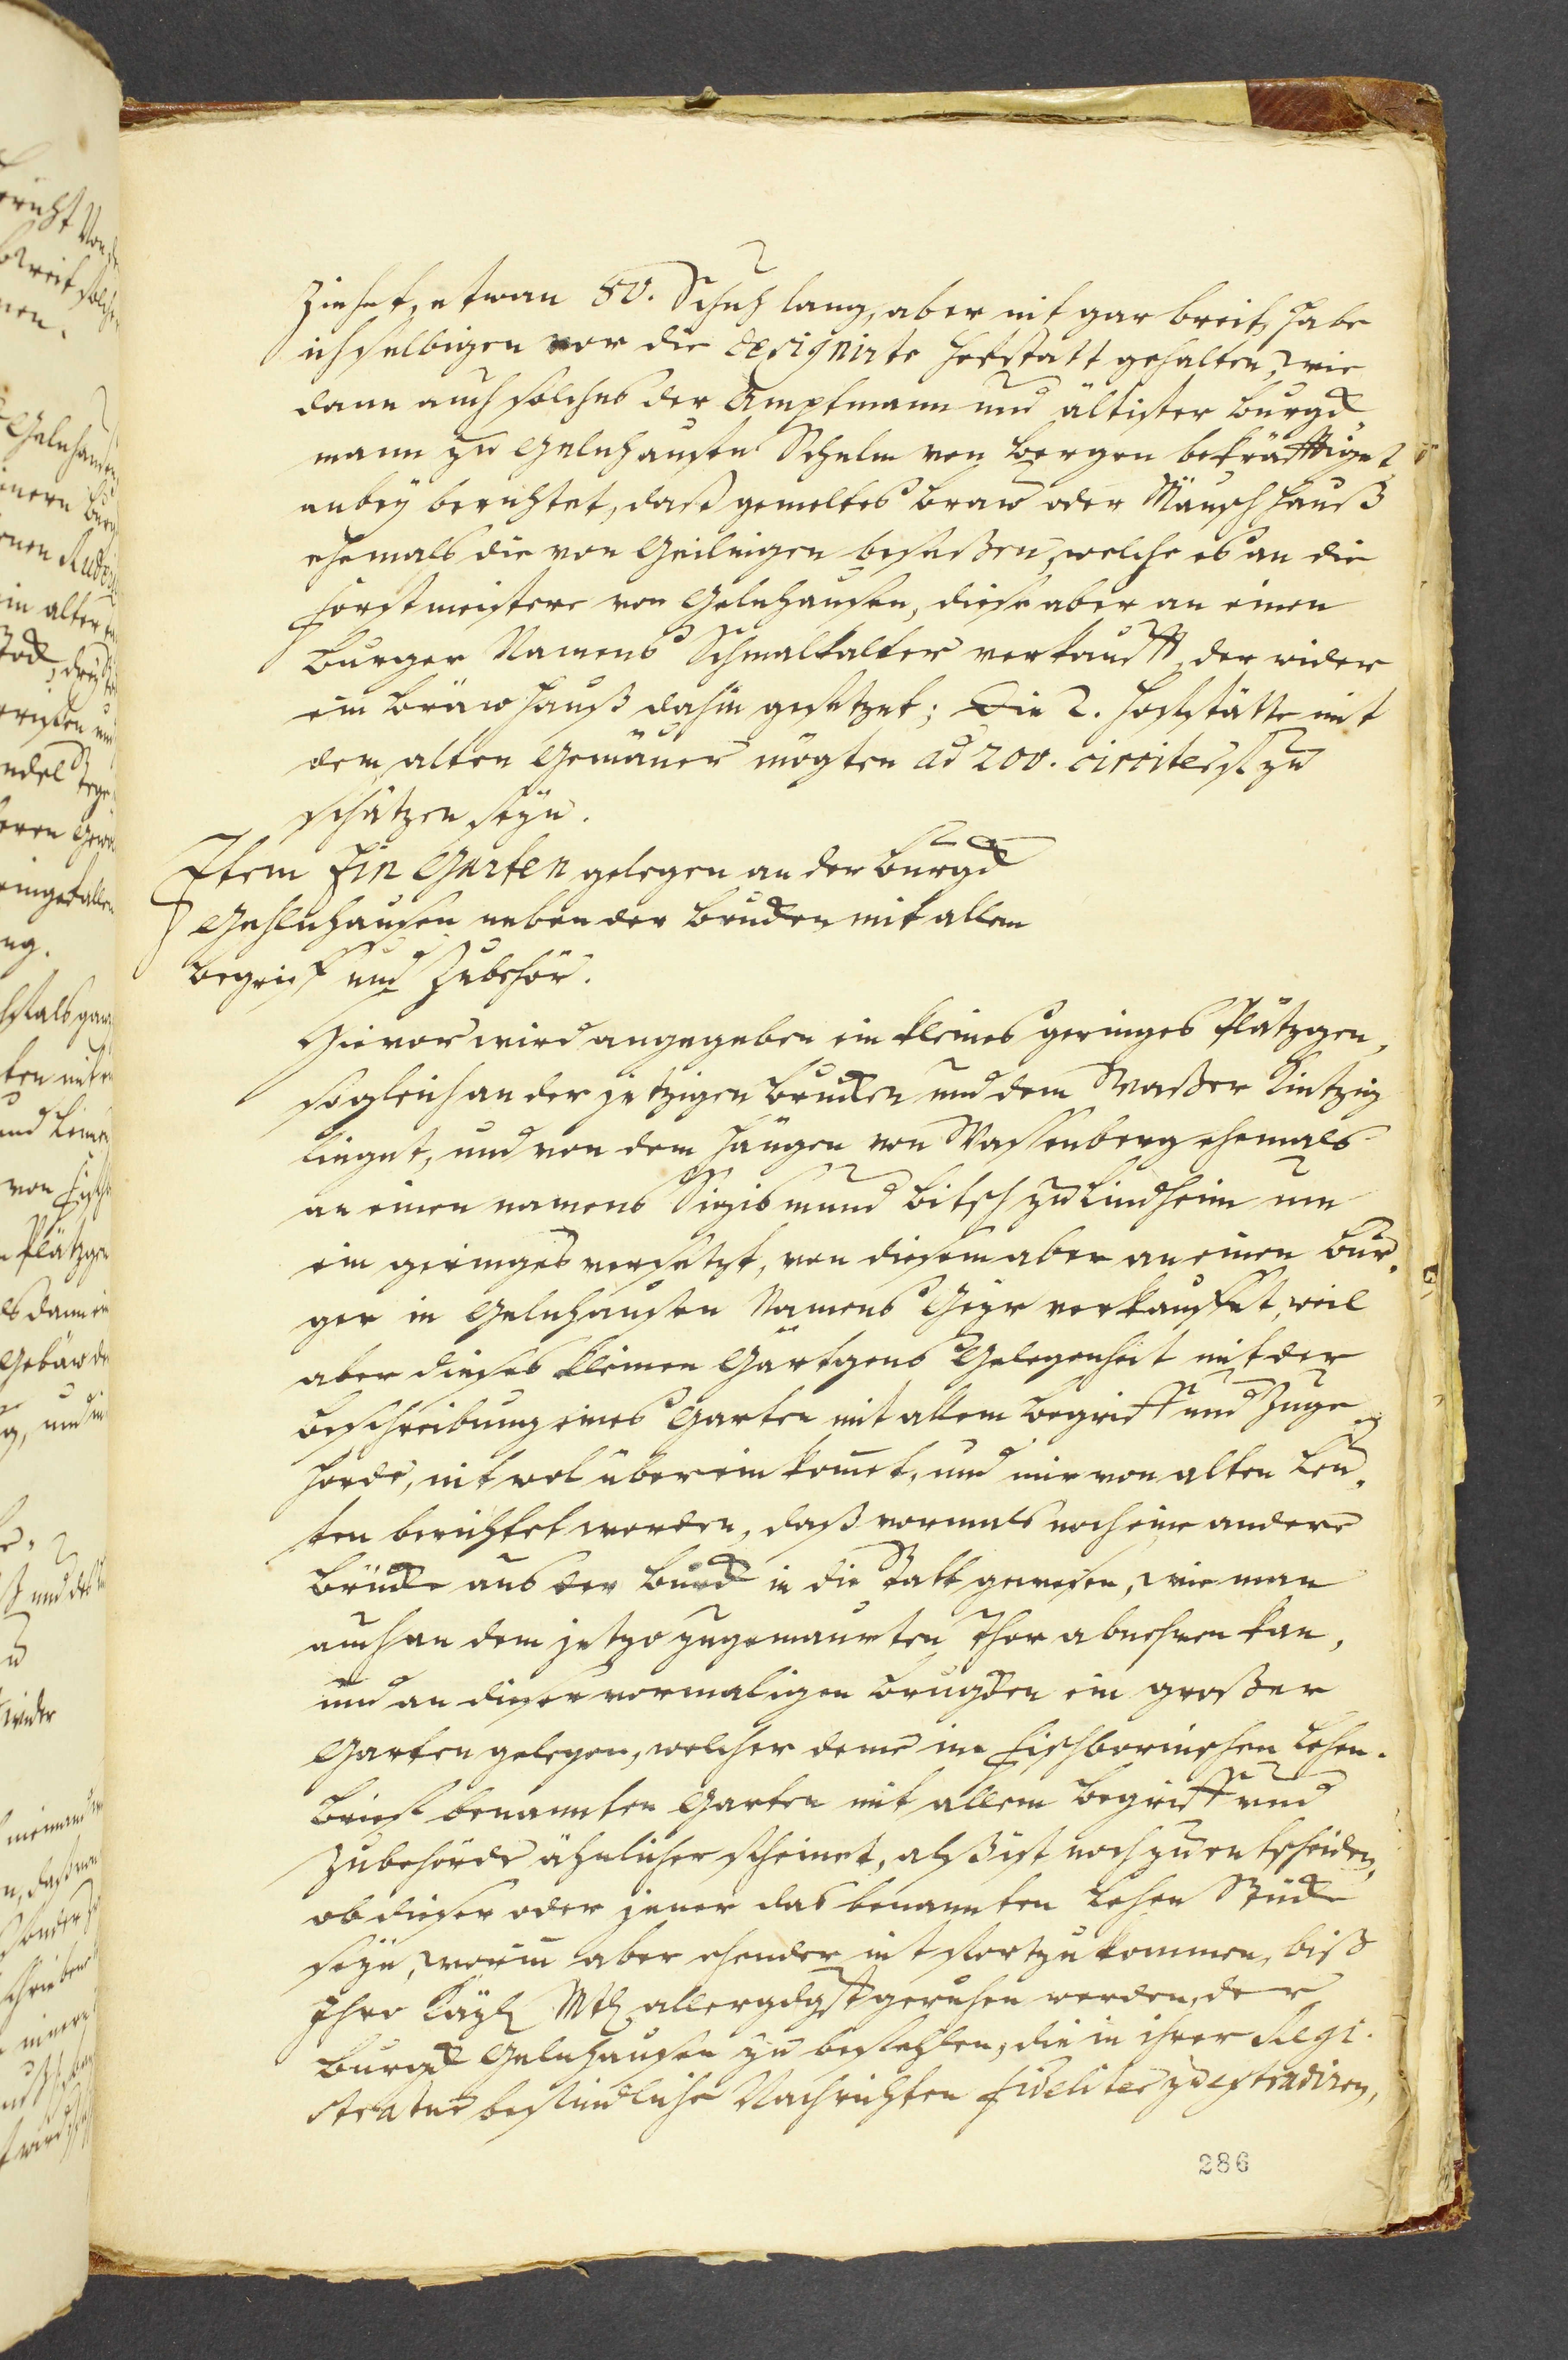 ziehet, etwan 50. Schuh lang, aber nit gar breit, habe
ich selbigen vor die designirte Hofstatt gehalten, wie
dann auch solches der Amptmann und ältister Burgk
mann zu Gelnhausen Schelm von Bergen bekräfftiget
anbey berichtet, daß gemeltes Braw oder Mänsch Hauß
ehemals die von Geilingen besessen, welche es an die
Forstmeistere von Gelnhausen, diese aber an einen
Burger Namens Schmalkalter verkaufft, der wider
ein Bräwhauß dahin gesetzet; Die 2. Hofstätte mit
dem alten Gemäuer mögten ad 200. circiter fl. zu
schätzen seyn.
Item Ein Garten gelegen an der Burgk
Gehlnhausen neben der Brucken mit allem
Begriff und Zubehör.
Hievor wird angegeben ein kleines geringes Plätzgen,
so gleich an der jetzigen Brucken und dem Waßer Kintzig
lieget, und von dem Häugen von Wassenberg ehemals
an einen namens Sigismund Bitsch zu Lindheim um
ein geringes versetzt, von diesem aber an einen Bur,
ger in Gelnhausen Namens Geyr verkauffet, weil
aber dieses kleinen Gärtgens Gelegenheit mit der
Beschreibung eines Garten mit allem Begriff und Zuge
hörde, nit wol überein komet, und mir von alten Leu,
ten berichtet worden, daß vormals noch eine andere
Brücke aus der Burck in die Statt gewesen, wie man
auch an dem jetzo zugemaurten Thor abnehmen kan,
und an dieser vormaligen Brugken ein großer
Garten gelegen, welcher deme im Fischbornischen Lehen.
Brieff benannten Garten mit allem Begriff und
Zubehörde ähnlicher scheinet, alß ist noch zu entscheiden,
ob dieser oder jener das benannten Lehen Stück
seyn, worin aber ehender nit fortzukommen, biß
Ihro Kayl Mtt allergdgst geruhen werden, der
Burgk Gelnhausen zu befehlen, die in ihrer Regi.
stratur befindliche Nachrichten fideliter zu extradiren,
286